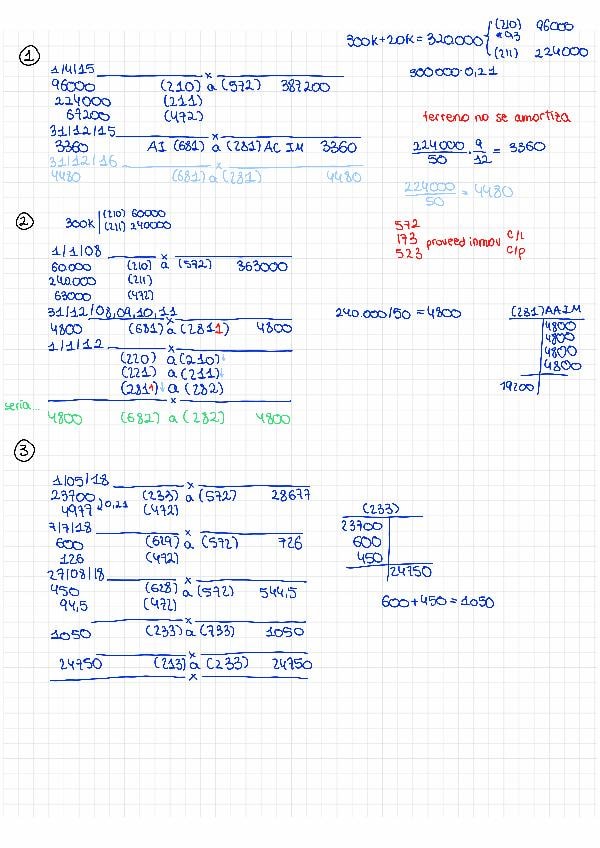 300K+20K = 320.000 (210) 96000
*0,3
(211) 224000
300000·0,21
①
1/4/15 x
96000 (210) a (572) 387200
224000 (211)
67200 (472)
31/12/15 x
3360 AI (681) a (281) AC IM 3360
31/12/16 x
4480 (681) a (281) 4480
terreno no se amortiza
224000/50 · 9/12 = 3360
224000/50 = 4480
572
173 proveed inmov C/L
523 C/P
②
300K (210) 60000
(211) 240000
1/1/08 x
60.000 (210) a (572) 363000
240.000 (211)
63000 (472)
31/12/08,09,10,11 x
4800 (681) a (2811) 4800
1/1/12 x
(220) a (210)↓
(221) a (211)↓
(2811)↓ a (282)
x
sería...
4800 (682) a (282) 4800
240.000/50 = 4800
(281) AAIM
4800
4800
4800
4800
19200
③
1/05/18 x
23700 (233) a (572) 28677
4977 0,21 (472)
7/7/18 x
600 (629) a (572) 726
126 (472)
27/08/18 x
450 (628) a (572) 544,5
94,5 (472)
x
1050 (233) a (733) 1050
x
24750 (213) a (233) 24750
x
(233)
23700
600
450
24750
600+450 = 1050